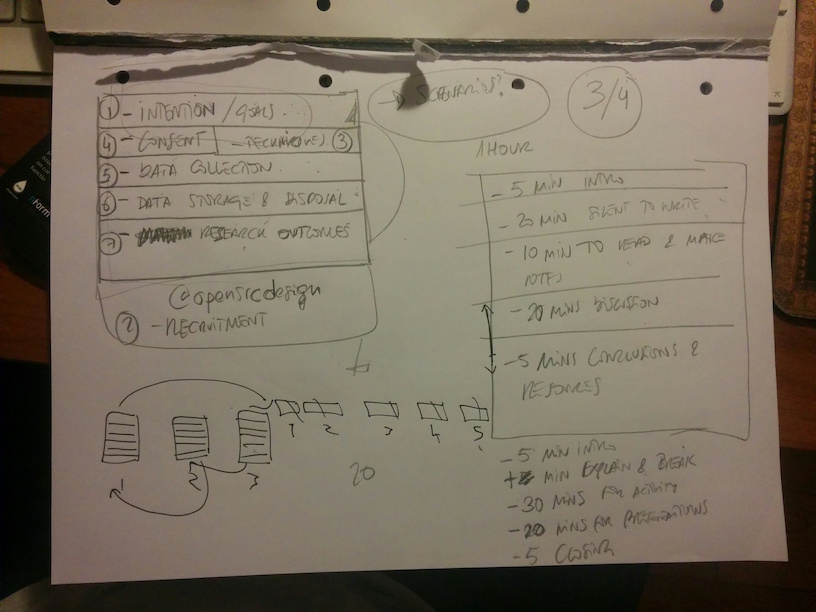 ① - INTENTION / GOALS
④ - CONSENT - TECHNIQUES ③
⑤ - DATA COLLECTION
⑥ - DATA STORAGE & DISPOSAL
⑦ - RESEARCH OUTCOMES
@opensrcdesign
② - RECRUITMENT
→ SCENARIOS?
3/4
1 HOUR
- 5 MIN INTRO
- 20 MIN SILENT TO WRITE
- 10 MIN TO READ & MAKE
NOTES
- 20 MINS DISCUSSION
- 5 MINS CONCLUSIONS &
RESOURCES
1 2 3
1 2 3 4 5
20
- 5 MIN INTRO
MIN EXPLAIN & BREAK
- 30 MINS FOR ACTIVITY
- 20 MINS FOR PRESENTATIONS
- 5 CLOSING